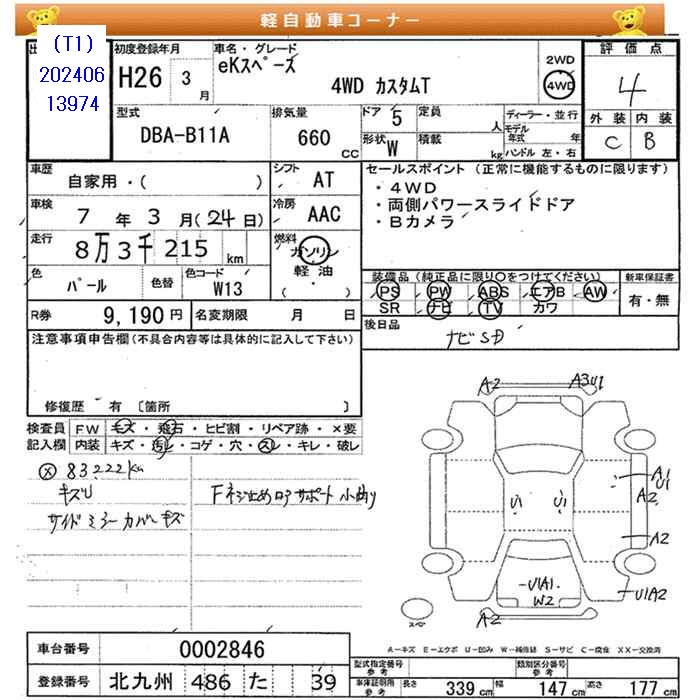 軽自動車コーナー
(T1)
202406
13974
初度登録年月
H26 3月
車名・グレード
eKスペーズ
4WD カスタムT
2WD
4WD
評価点
4
外装 内装
C B
型式
DBA-B11A
排気量
660 cc
ドア 5
定員 人
形状 W
積載 kg
ディーラー・並行
モデル年式 年
ハンドル 左・右
車歴
自家用・( )
シフト
AT
車検
7年3月(24日)
冷房
AAC
走行
8万3千215km
燃料
ガソリン
軽油
( ・ )
色
パール
色替
色コード
W13
R券
9,190円
名変期限 月 日
セールスポイント(正常に機能するものに限ります)
・4WD
・両側パワースライドドア
・Bカメラ
装備品(純正品に限り○をつけてください)
PS PW ABS エアB AW
SR ナビ TV カワ
新車保証書
有・無
後日品
ナビSD
注意事項申告欄(不具合内容等は具体的に記入して下さい)
修復歴 有 〔箇所 〕
検査員
記入欄
FW キズ・飛石・ヒビ割・リペア跡・×要
内装 キズ・汚レ・コゲ・穴・スレ・キレ・破レ
83222km
キズU
サイドミラーカバーキズ
Fネジ止めロアサポート小曲り
A2 A3U1
A1
U1
A2
U1 U1
A2
U1A1
W2
U1A2
A2
スペア
A-キズ E-エクボ U-凹み W-補修跡 S-サビ C-腐食 XX-交換済
車台番号 0002846
登録番号 北九州 486 た 39
型式指定番号
参考
類別区分番号
参考
車庫証明用
参考
長さ 339cm 幅 147cm 高さ 177cm